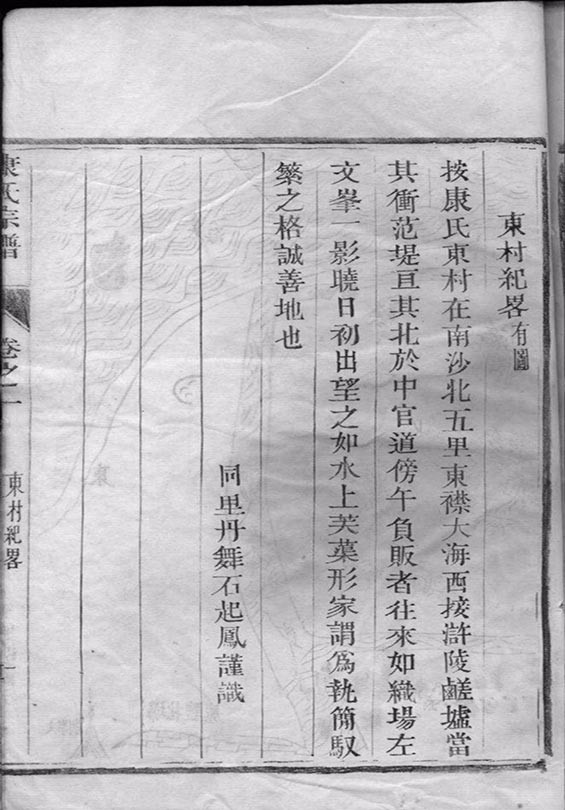 東村紀畧有圖
按康氏東村在南沙北五里東襟大海西接滸陵鹺墟當
其衝范堤亘其北於中官道傍午負販者往來如織場左
文峯一影曉日初出望之如水上芙蕖形家謂爲執簡馭
繁之格誠善地也
同里丹舞石起鳳謹識
康氏宗譜
卷之二
東村紀畧
一